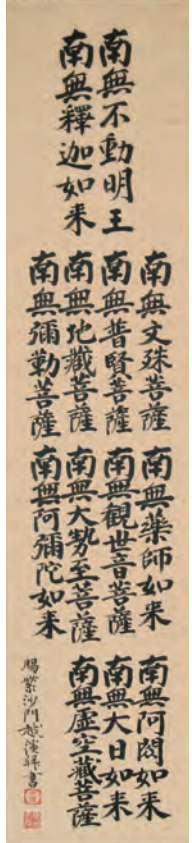 南無不動明王
南無釋迦如来
南無文殊菩薩
南無普賢菩薩
南無地藏菩薩
南無彌勒菩薩
南無藥師如来
南無觀世音菩薩
南無大勢至菩薩
南無阿彌陀如来
南無阿閦如来
南無大日如来
南無虚空藏菩薩
賜紫沙門 書